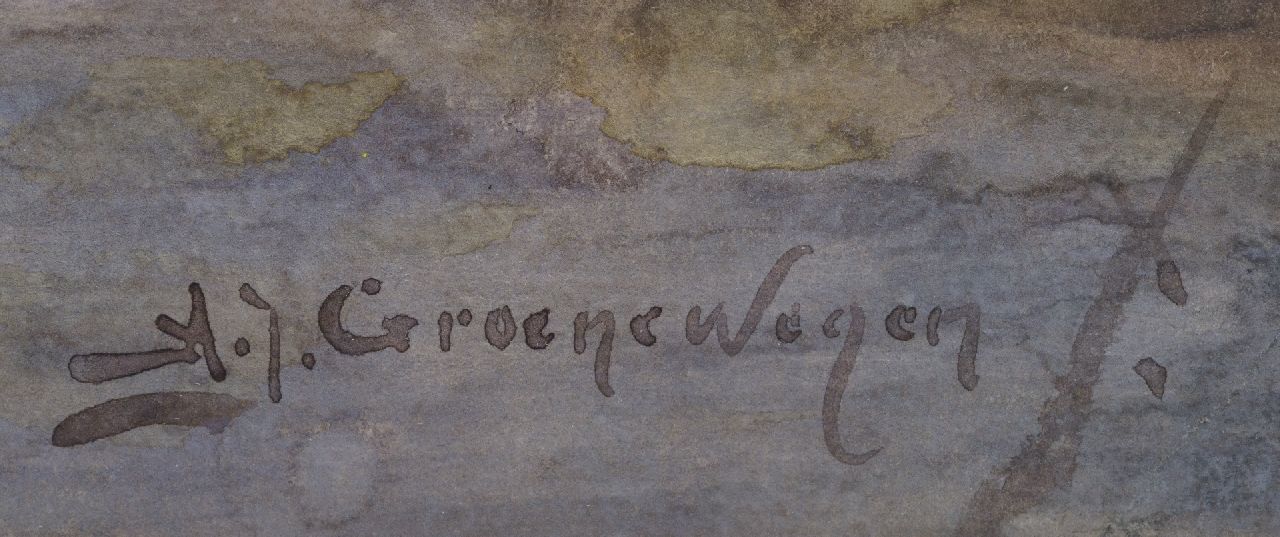 A.J. Groenewegen